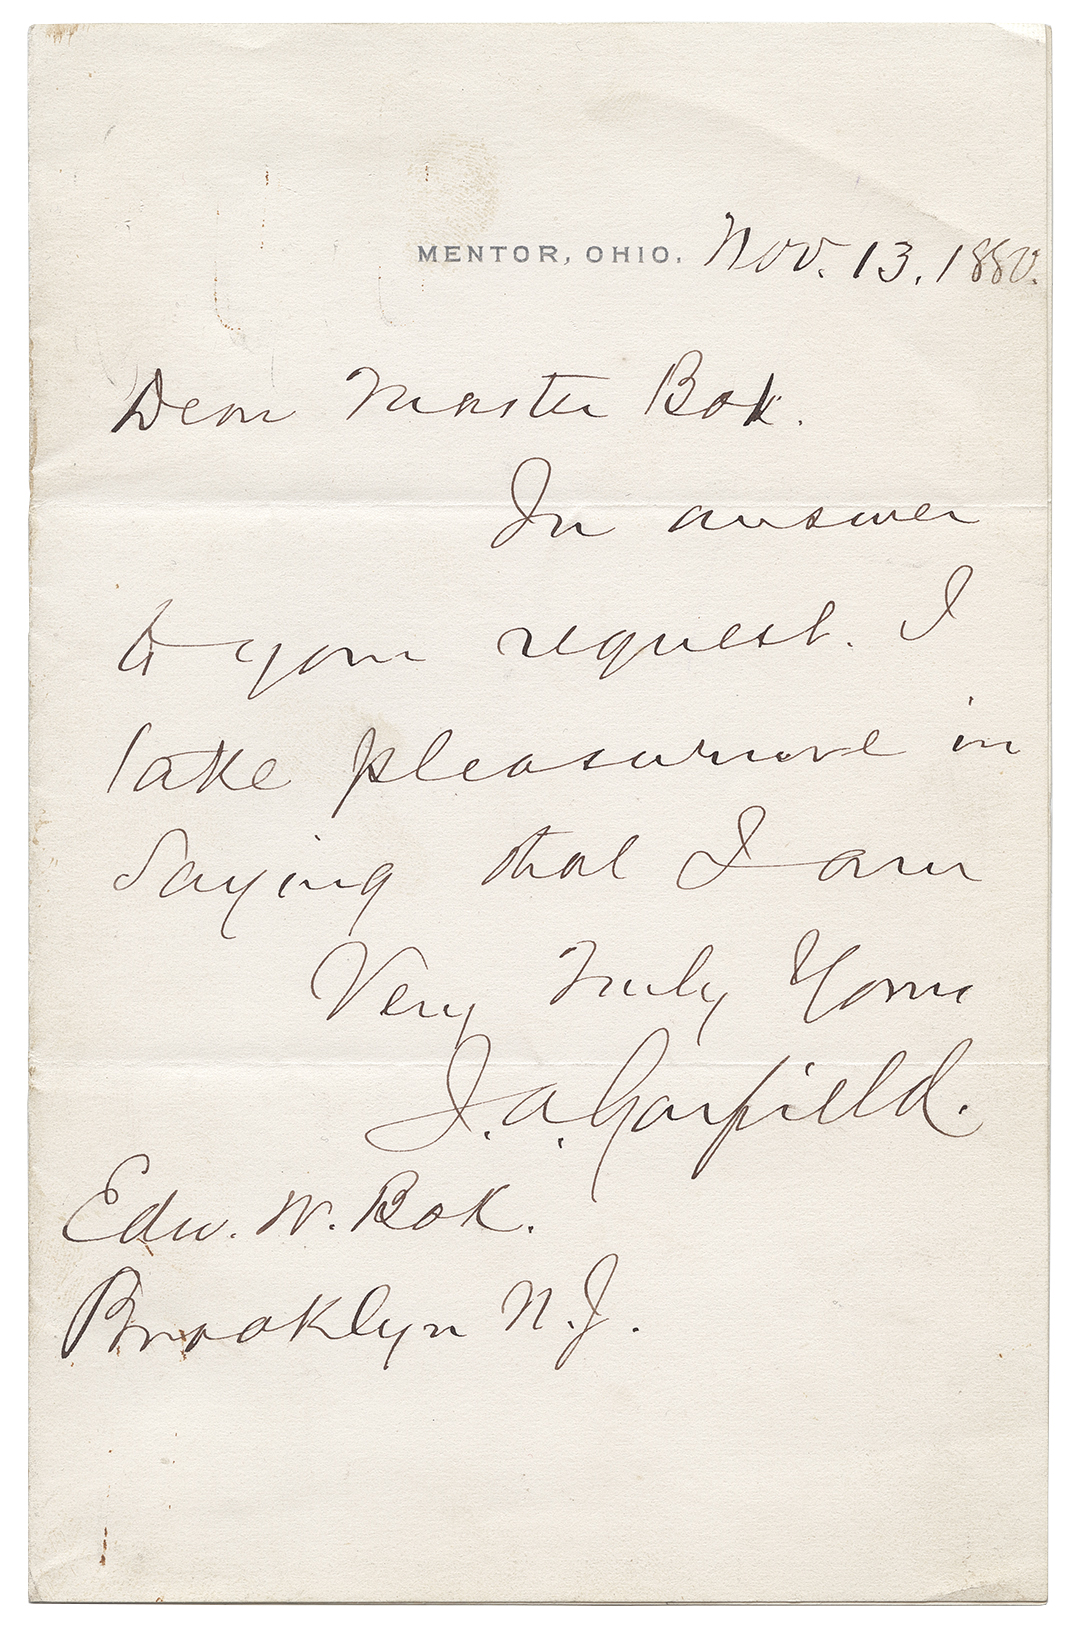 MENTOR, OHIO. Nov. 13. 1880.
Dear Master Bok.
In answer
to your request. I
take pleasure in
saying that I am
Very Truly Yours
J. A. Garfield.
Edw. W. Bok.
Brooklyn N. J.